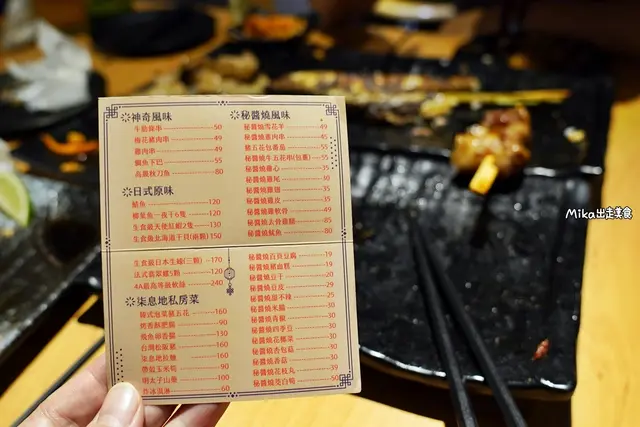 神奇風味
牛肋條串 50
梅花豬肉串 49
雞肉串 49
鯛魚下巴 55
高級秋刀魚 80
日式原味
鯖魚 120
柳葉魚一夜干6隻 120
生食級天使紅蝦2隻 130
生食級北海道干貝(兩顆) 150
生食級日本生蠔(三顆) 170
法式翡翠螺5顆 120
4A最高等級軟絲 240
柒息地私房菜
韓式泡菜豬五花 160
烤香酥肥腸 90
飛魚卵香腸 130
台灣松阪豬 160
柒息地拉麵 160
帶殼玉米筍 90
明太子山藥 100
炸冰淇淋 60
秘醬燒風味
秘醬燒雪花羊 49
秘醬燒薑肉串 45
豬五花包番茄 55
秘醬燒牛五花串(包蔥) 55
秘醬燒雞心 35
秘醬燒雞尾 30
秘醬燒雞翅 35
秘醬燒雞皮 35
秘醬燒雞軟骨 49
秘醬燒去骨雞腿 85
秘醬燒魷魚 80
秘醬燒百頁豆腐 19
秘醬燒豬血糕 19
秘醬燒豆干 20
秘醬燒豆皮 29
秘醬燒甜不辣 25
秘醬燒米腸 30
秘醬燒青椒 30
秘醬燒四季豆 30
秘醬燒花椰菜 30
秘醬燒香包菇 30
秘醬燒香菇 30
秘醬燒花枝丸 39
秘醬燒茭白筍 50
Mika出走美食